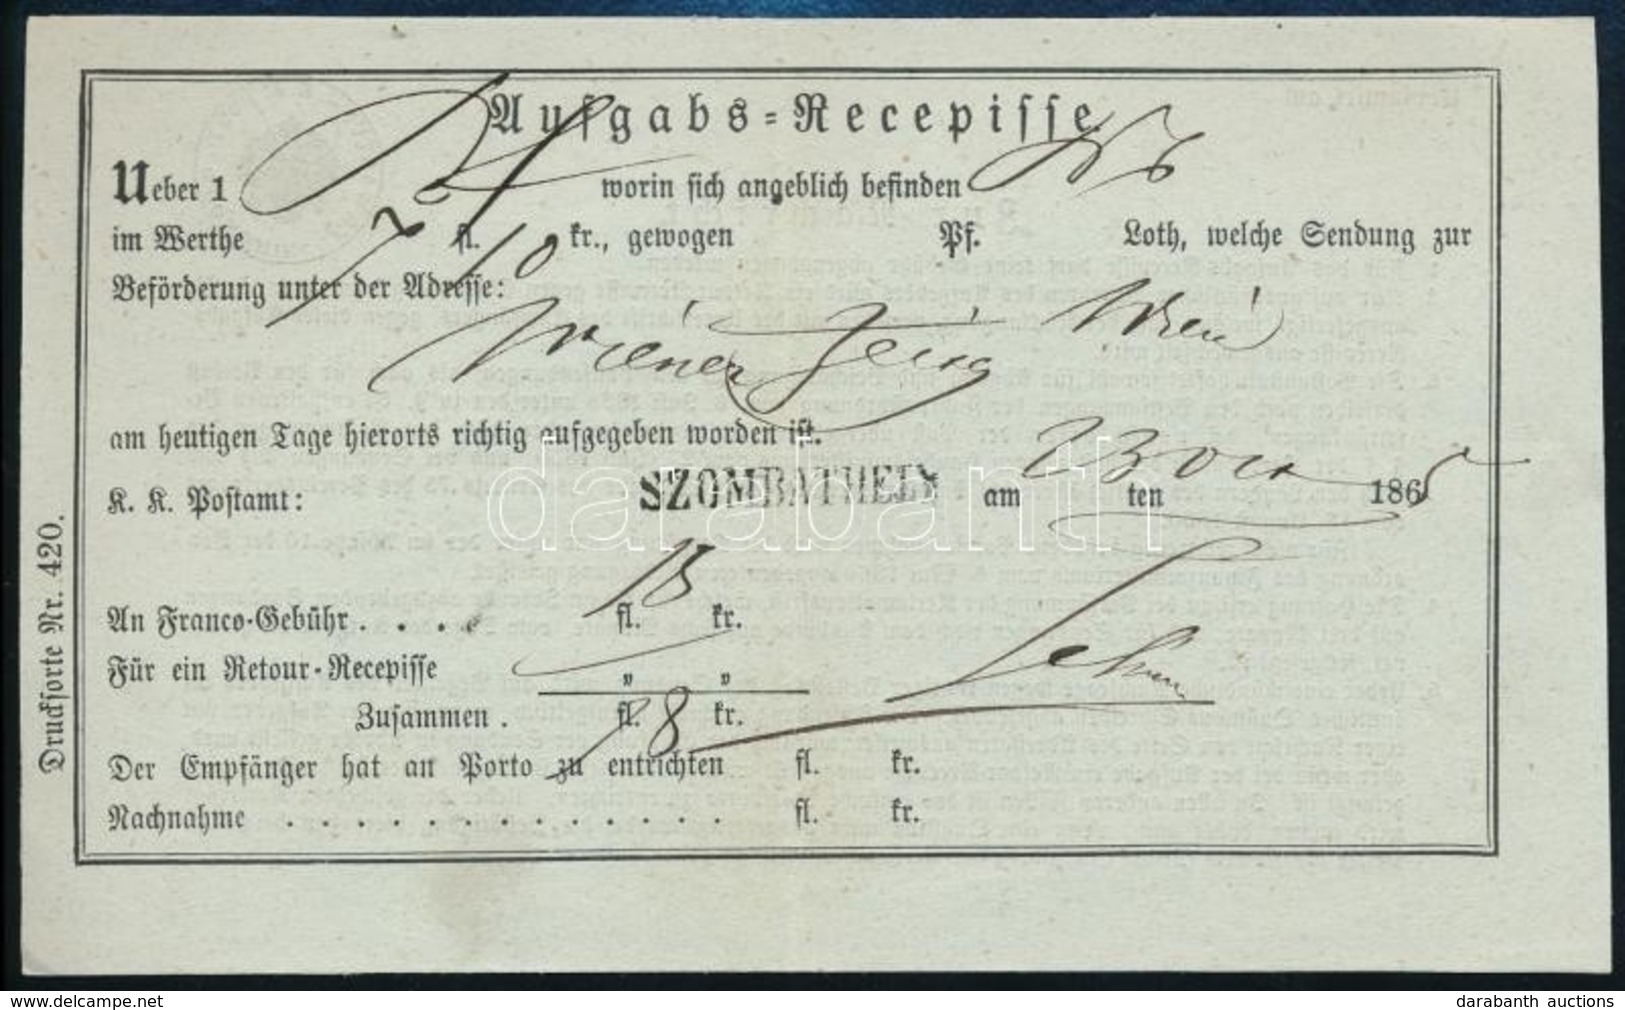 Aufgabs=Recepisse
Ueber 1 worin sich angeblich befinden
im Werthe 7 fl. 10 kr., gewogen Pf. Loth, welche Sendung zur
Beförderung unter der Adresse:
Wiener Wien
am heutigen Tage hierorts richtig aufgegeben worden ist.
K. K. Postamt: SZOMBATHELY am 23 ten 1865
An Franco-Gebühr . . . . fl. 18 kr.
Für ein Retour-Recepisse " "
Zusammen . fl. 18 kr.
Der Empfänger hat an Porto zu entrichten fl. kr.
Nachnahme . . . . . . . . . . . . . . . . fl. kr.
Drucksorte Nr. 420.
darabanth
www.delcampe.net
darabanth auctions